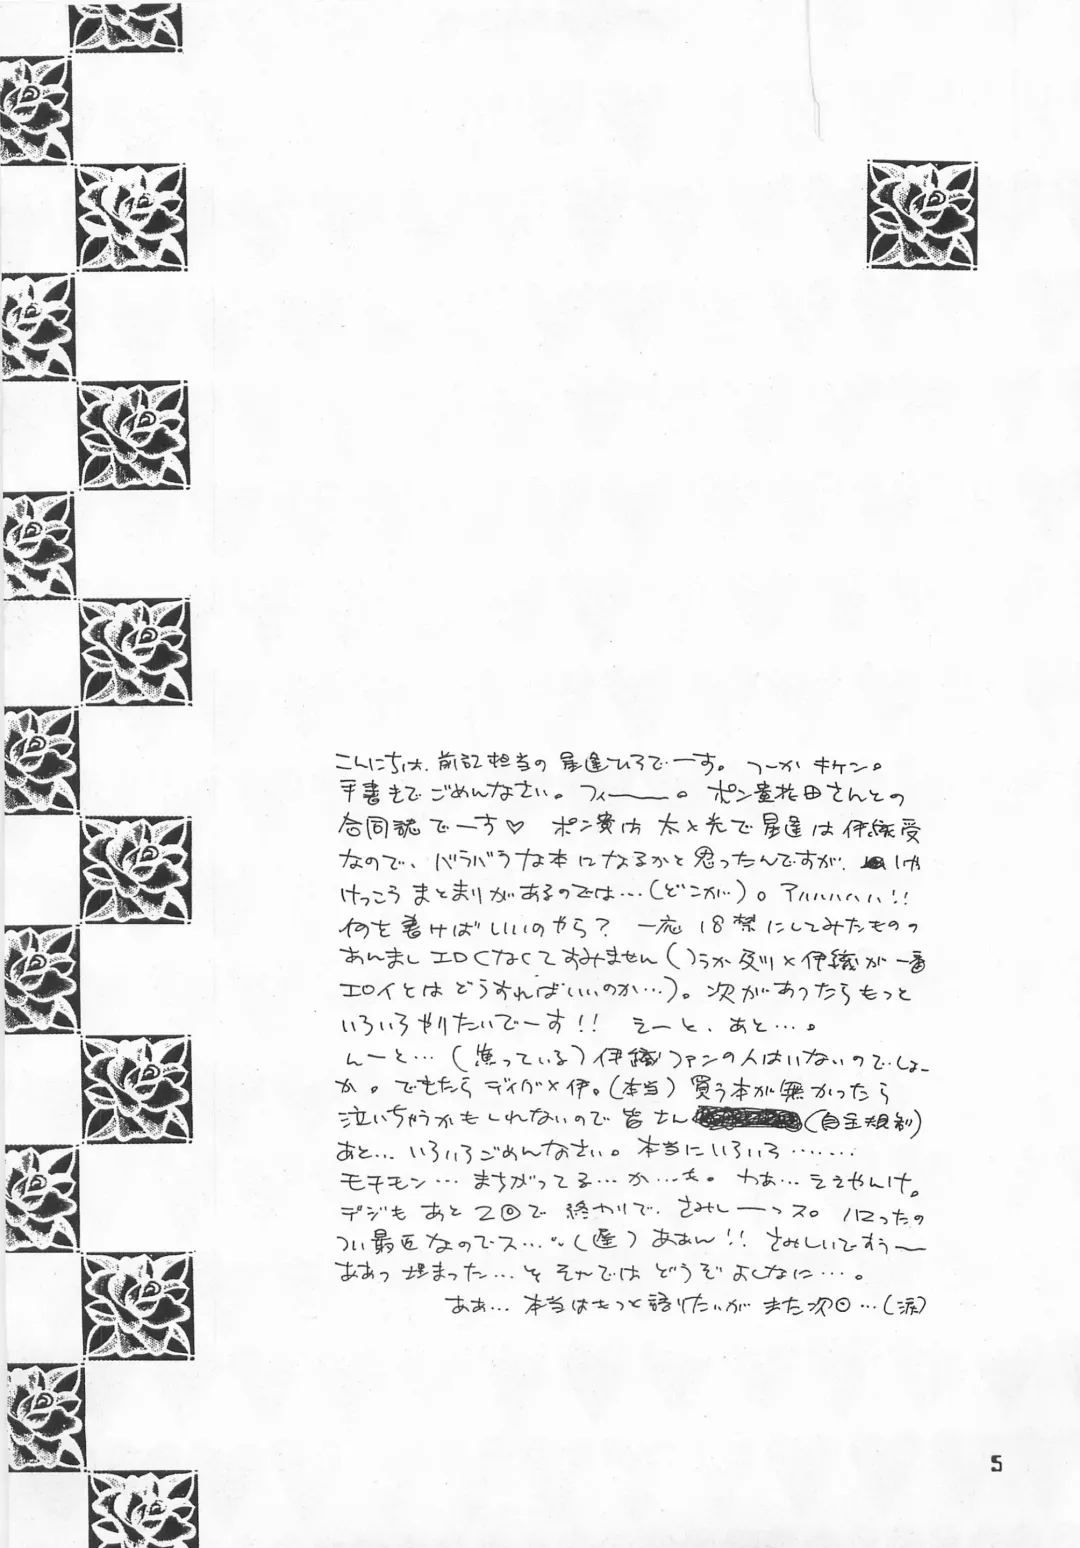 こんにちは、前記担当の星逢ひろでーす。つーかキケン。
手書きでごめんなさい。フィー――。ポン貴花田さんとの
合同誌でーす♡ ポン貴は太と光で星逢は伊織受
なので、バラバラな本になるかと思ったんですが、
けっこうまとまりがあるのでは…(どこが)。アハハハハハ!!
何を書けばいいのやら? 一応18禁にしてみたものの
あんましエロくなくてすみません(つうか及川×伊織が一番
エロイとはどうすればいいのか…)。次があったらもっと
いろいろやりたいでーす!! えーと、あと…。
んーと…(焦っている)伊織ファンの人はいないのでしょー
か。でもたら ディグ×伊。(本当)買う本が無かったら
泣いちゃうかもしれないので皆さん(自主規制)
あと… いろいろごめんなさい。本当にいろいろ……
モチモン…まちがってる…か…も。わあ…ええやんけ。
デジもあと2回で終わりで、さみしーーっス。ハマったの
つい最近なのでス…(遅)ああん!! さみしいですぅ〜
ああっ埋まった…とそれではどうぞよしなに…。
ああ… 本当はもっと語りたいがまた次回…(涙)
5